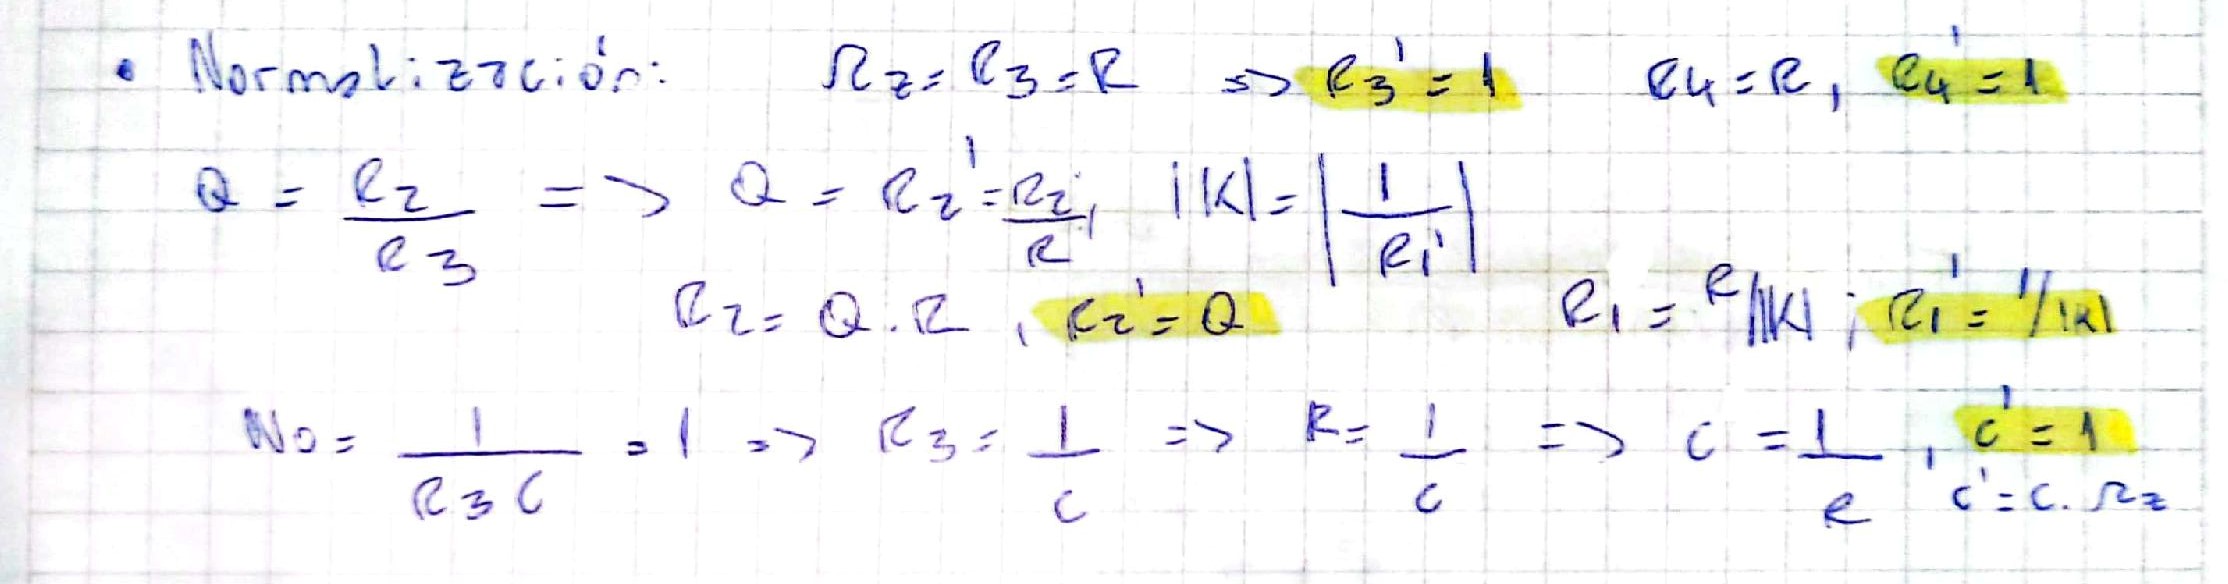 • Normalización: Ωz = R3 = R => R3' = 1 R4 = R, R4' = 1
Q = R2/R3 => Q = R2' = R2/R, |K| = |1/R1'|
R2 = Q.R, R2' = Q R1 = R/|K|; R1' = 1/|K|
Wo = 1/(R3C) = 1 => R3 = 1/C => R = 1/C => C = 1/R, C' = 1
C' = C.Ωz